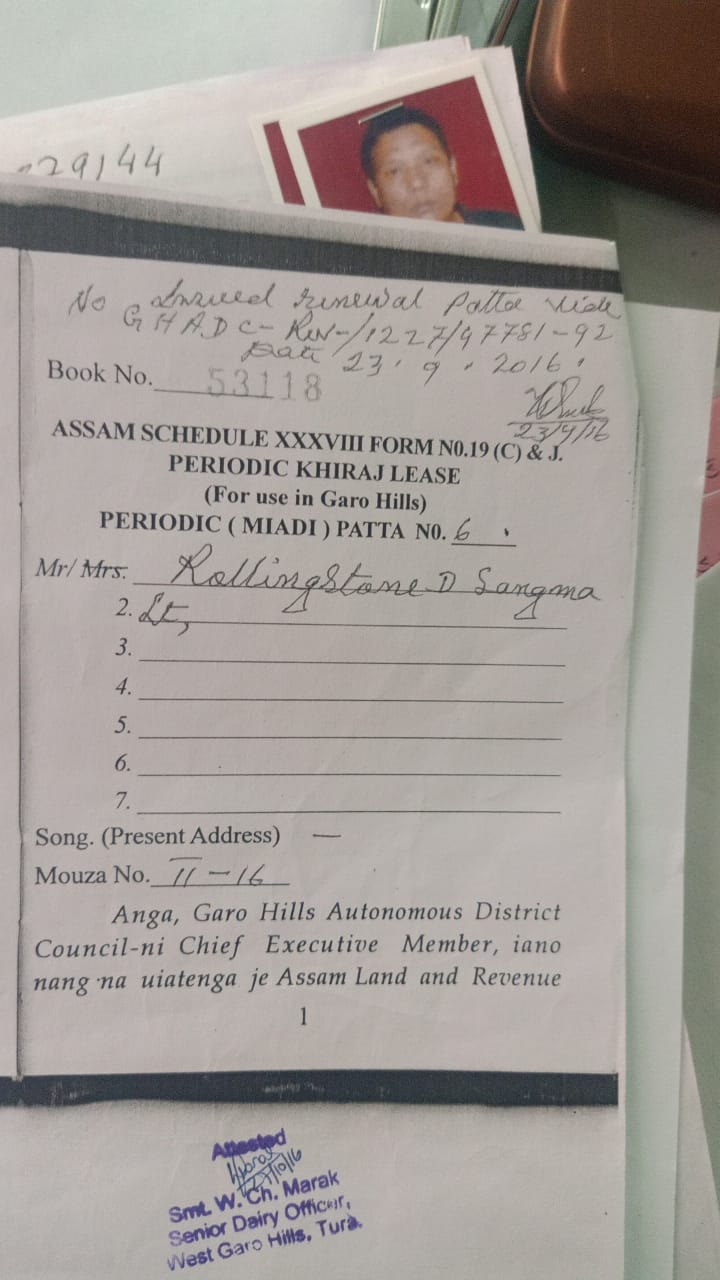 29144
No Issued renewal Patta vide
GHADC-Rev-/1227/47781-92
Date 23.9.2016.
Book No. 53118
23/9/16
ASSAM SCHEDULE XXXVIII FORM N0.19 (C) & J.
PERIODIC KHIRAJ LEASE
(For use in Garo Hills)
PERIODIC ( MIADI ) PATTA N0. 6
Mr/ Mrs. RollingStone D Sangma
2. Lt,
3.
4.
5.
6.
7.
Song. (Present Address) —
Mouza No. II-16
Anga, Garo Hills Autonomous District
Council-ni Chief Executive Member, iano
nang·na uiatenga je Assam Land and Revenue
1
Attested
Smt. W. Ch. Marak
Senior Dairy Officer,
West Garo Hills, Tura.